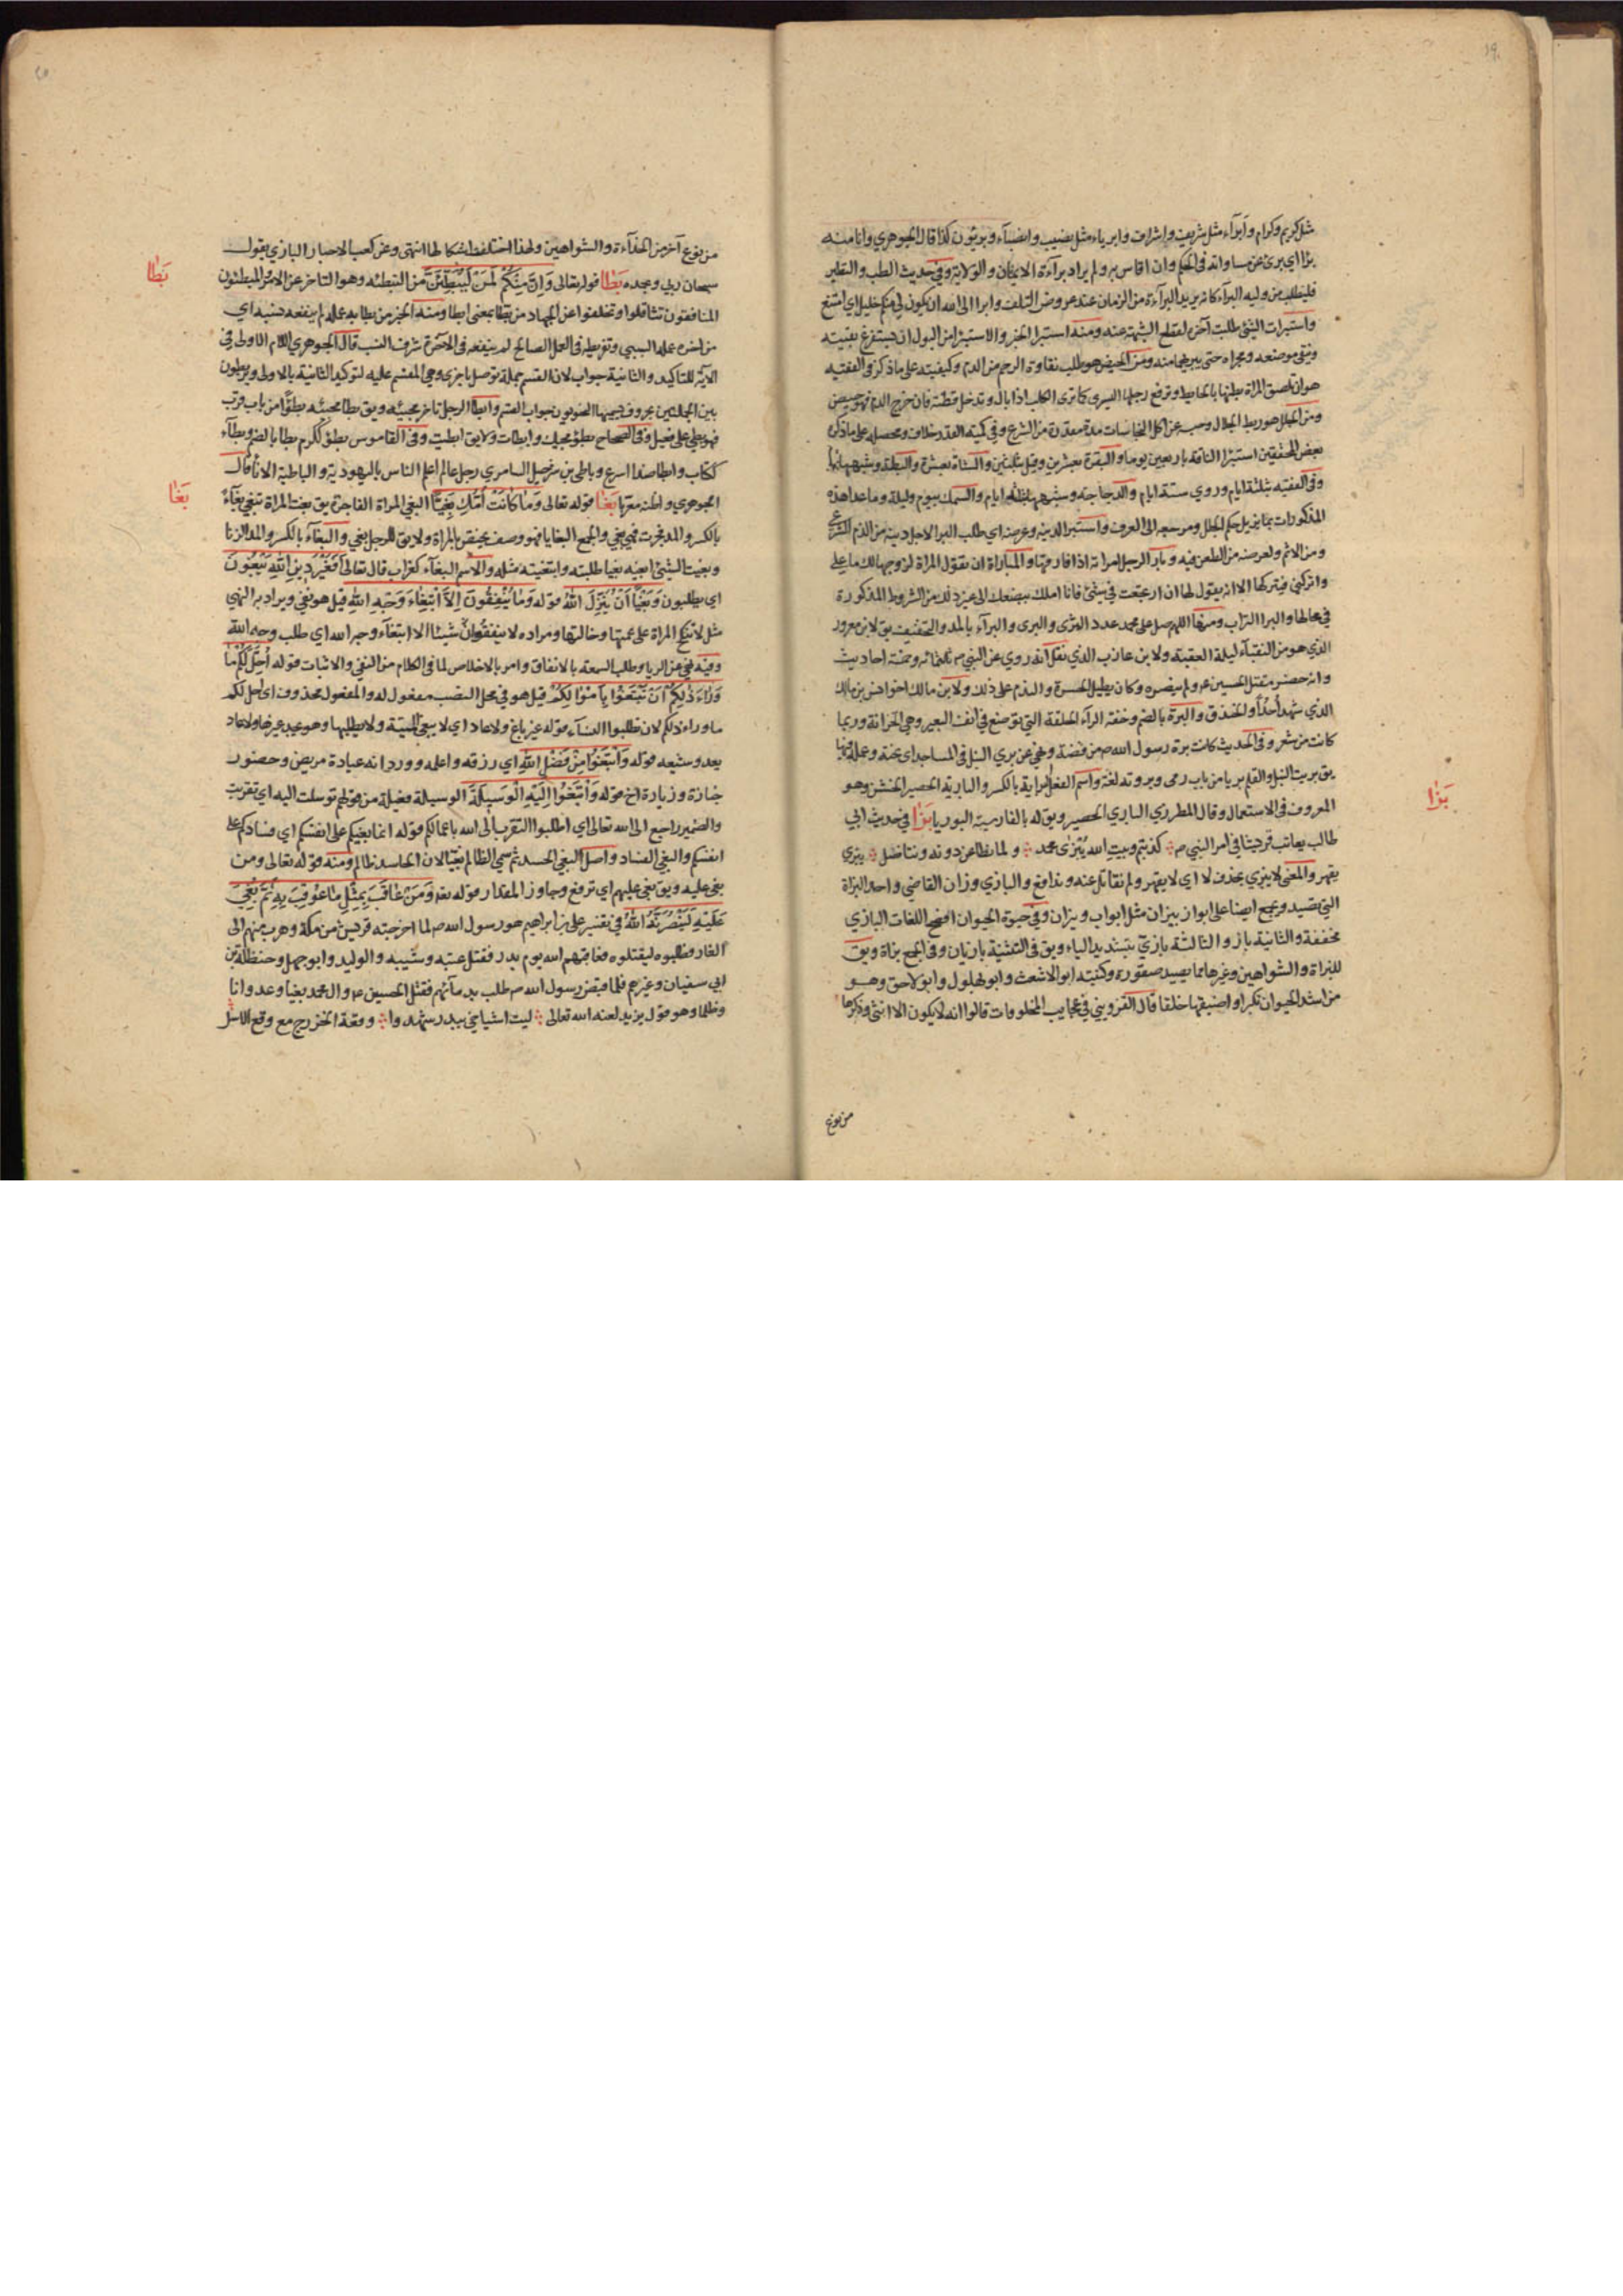 مثل كريم وكرام وأبرآء مثل شريف واشراف وابرياء مثل نصيب وانصباء وبريئون كذا قال الجوهري وانا منه
برا اي بريئ عن مساواته في الحكم وان اقاس به ولم يراد برآءة الايمان والولاية وفي حديث الطب والتطبر
فليطلب من وليه البرآء كانه يريد البرآءة من الزمان عند عروض التلف وابرا الى الله ان يكون لي منكم خليل اي امتنع
واستبرات الشئ طلبت آخره لقطع الشبهة عنه ومنه استبرا الخبر والاستبرا من البول ان يستفرغ بقيته
وينقي موضعه ومجراه حتى يبريهما منه ومن الحيض هو طلب نقاوة الرحم من الدم وكيفيته على ما ذكر في الفقيه
هو ان تلصق المراة بطنها بالحايط وترفع رجلها اليسرى كما ترى الكلب اذا بال وتدخل قطنة فان خرج الدم فهو حيض
ومن الجلل هو ربط الجلال وحبسه عن اكل النجاسات مدة مقدرة من الشرع وفي كمية القدر خلاف ومحصله على ما ذكره
بعض المحققين استبرا الناقة باربعين يوما والبقرة بعشرين وقيل بثلثين والشاة بعشرة والبطة وشبهها
وفي الفقيه بثلثة ايام وروي ستة ايام والدجاجة وشبهها بثلثة ايام والسمك بيوم وليلة وما عدا هذه
المذكورات بما يزيل حكم الجلل ومرجعه الى العرف واستبر الدينه وعرضه اي طلب البرا لاجل دينه من الذم الشرعي
ومن الاثم ولعرضه من الطعن فيه وبارا الرجل امراته اذا فارقها والمباراة ان تقول المراة لزوجها لك ما علي
واتركني فيتركها الا انه يقول لها ان ارتجعت في شئ فانا املك ببضعك الى غير ذلك من الشروط المذكورة
في محالها والبرا التراب ومنه اللهم صل على محمد عدد الثرى والبرى والبرآء بالمد والتخفيف يق لابن معرور
الذي هو من النقبآء ليلة العقبة ولابن عازب الذي نقل انه روي عن النبي ص ثلثمائة وخمسة احاديث
وانه حضر مقتل الحسين ع ولم ينصره وكان يطيل الحسرة والندم على ذلك ولابن مالك اخو انس بن مالك
الذي شهد أحدًا والخندق والبرة بالضم وخفة الرآء الحلقة التي توضع في انف البعير وهي الخزامة وربما
كانت من شعر وفي الحديث كانت برة رسول الله ص من فضة ونهي عن بري النبل في المساجد اي نحته وعمله فيها
يق بريت النبل والقلم بريا من باب رمى وبروته لغة واسم الفعل البراية بالكسر والبارية الحصير الخشن وهو
المعروف في الاستعمال وقال المطرزي الباري الحصير ويق له بالفارسية البوريا بَزا في حديث ابي
طالب يعاتب قريشا في امر النبي ص كذبتم وبيت الله يُبزى محمد ولما نطاعن دونه ونناضل يبزى
يقهر والمعنى لا يبزي بحذف لا اي لا يقهر ولم نقاتل عنه وندافع والبازي وزان القاضي واحد البزاة
التي تصيد ويجمع ايضا على ابواز وبيزان مثل ابواب وبيبان وفي حيوة الحيوان افصح اللغات البازي
مخففة والثانية باز والثالثة بازي بتشديد الياء ويق في التثنية بازيان وفي الجمع بزاة ويق
للبزاة والشواهين وغيرها مما يصيد صقورة وكنيته ابو الاشعث وابو البهلول وابو لاحق وهو
من اشد الحيوان تكبرا واضيقها خلقا قال القزويني في عجايب المخلوقات قالوا انه لا يكون الا انثى وذكرها
من نوع
بَزا
من نوع آخر من الحدآءة والشواهين ولهذا اختلفت اشكالها انتهى وعن كعب الاحبار البازي يقول
سبحان ربي وبحمده بَطا قوله تعالى وَاِنَّ مِنْكُمْ لَمَنْ لَيُبَطِّئَنَّ من التبطئه وهو التاخر عن الامر المبطئون
المنافقون تثاقلوا وتخلفوا عن الجهاد من بطا بمعنى ابطا ومنه الخبر من بطا به عمله لم ينفعه نسبه اي
من اخره عمله السيئ وتفريطه في العمل الصالح لم ينفعه في الاخرة شرف النسب قال الجوهري اللام الاولى في
الآية للتاكيد والثانية جواب لان القسم جملة توصل باخرى وهي المقسم عليه لتوكيد الثانية بالاولى ويربطون
بين الجملتين بحروف يسميها النحويون جواب القسم وابطا الرجل تاخر مجيئه ويق بطا مجيئه بطؤًا من باب قرب
فهو بطي على فعيل وفي الصحاح بطؤ مجيئك وابطات ولا يق ابطيت وفي القاموس بطؤ ككرم بطا بالضم وبطآء
ككتاب وابطا ضد اسرع وباطي بن مرحيل السامري رجل عالم اعلم الناس باليهودية والباطية الاناء قال
الجوهري واظنه معربا بَغا قوله تعالى وَمَا كَانَتْ اُمُّكِ بَغِيًّا البغي المراة الفاجرة يق بغت المراة تبغي بغآءً
بالكسر والمد فجرت فهي بغي والجمع البغايا فهو وصف يختص بالمراة ولا يق للرجل بغي والبغآء بالكسر والمد الزنا
وبغيت الشئ ابغيه بغيا طلبته وابتغيته مثله والاسم البغآء كغراب قال تعالى اَفَغَيْرَ دِينِ اللهِ يَبْغُونَ
اي يطلبون وَبَغْيًا اَنْ يُنَزِّلَ اللهُ قوله وَمَا تُنْفِقُونَ اِلاَّ ابْتِغَاءَ وَجْهِ اللهِ قيل هو نفي ويراد به النهي
مثل لا تنكح المراة على عمتها وخالتها ومراده لا ينفقون شيئا الا ابتغآء وجه الله اي طلب وجه الله
وفيه نهي عن الريا وطلب السمعة بالانفاق وامر بالاخلاص لما في الكلام من النفي والاثبات قوله اُحِلَّ لَكُمْ مَا
وَرَاءَ ذَلِكُمْ اَنْ تَبْتَغُوا بِاَمْوَالِكُمْ قيل هو في محل النصب مفعول له والمفعول محذوف اي احل لكم
ما وراء ذلكم لان تطلبوا النسآء قوله غير باغ ولا عاد اي لا يبغي الميتة ولا يطلبها وهو يجد غيرها ولا عاد
يعدو شبعه قوله وَابْتَغُوا مِنْ فَضْلِ اللهِ اي رزقه واعلمه وورد انه عيادة مريض وحضور
جنازة وزيارة اخ قوله وَابْتَغُوا اِلَيْهِ الْوَسِيلَةَ الوسيلة فعيلة من قولهم توسلت اليه اي تقربت
والضمير راجع الى الله تعالى اي اطلبوا التقرب الى الله باعمالكم قوله انما بغيكم على انفسكم اي فسادكم على
انفسكم والبغي الفساد واصل البغي الحسد ثم سمي الظالم بغيا لان الحاسد ظالم ومنه قوله تعالى ومن
بغى عليه ويق بغى عليهم اي ترفع وجاوز المقدار قوله تعالى وَمَنْ عَاقَبَ بِمِثْلِ مَا عُوقِبَ بِهِ ثُمَّ بُغِيَ
عَلَيْهِ لَيَنْصُرَنَّهُ اللهُ في تفسير علي بن ابراهيم هو رسول الله ص لما اخرجته قريش من مكة وهرب منهم الى
الغار وطلبوه ليقتلوه فعاقبهم الله يوم بدر فقتل عتبه وشيبه والوليد وابو جهل وحنظلة بن
ابي سفيان وغيرهم فلما قبض رسول الله ص طلب بدمآئهم فقتل الحسين ع وال محمد بغيا وعدوانا
وظلما وهو قول يزيد لعنه الله تعالى ليت اشياخي ببدر شهدوا وقعة الخزرج مع وقع الاسل
بَطا
بَغا